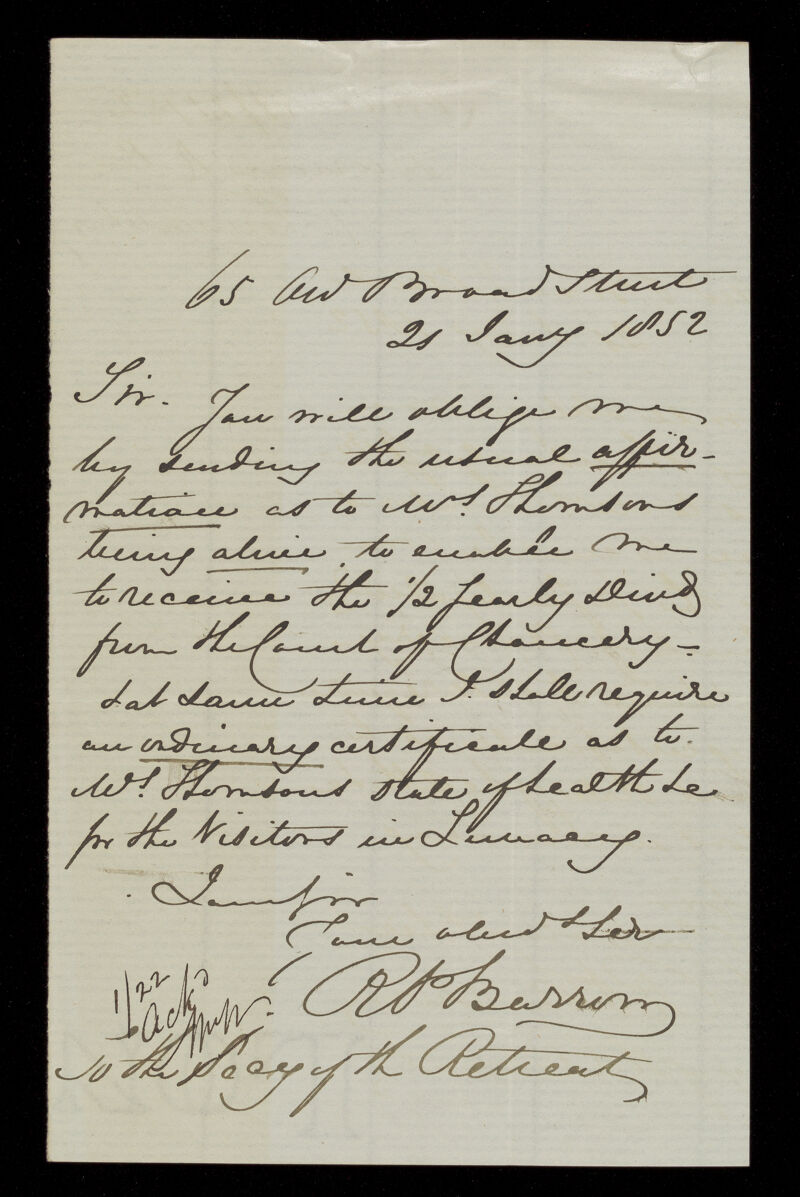 65 Old Broad Street
21 Jany 1852
Sir. You will oblige me
by sending the usual affir-
mation as to Mrs. Thomsons
being alive, to enable me
to receive the 1/2 yearly Divd
from the Court of Chancery -
& at same time I shall require
an ordinary certificate as to
Mrs. Thomsons state of health &c
for the Visitors in Lunacy.
I am Sir
Your obedt Ser
R P Barrow
1/22
Ackd
To the Secy of the Retreat